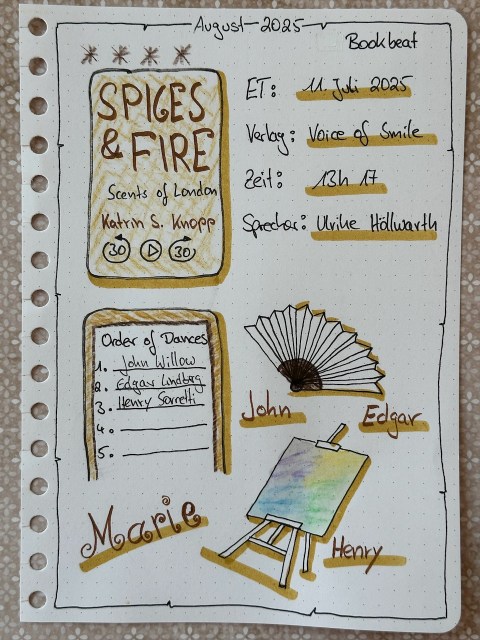 August 2025
Bookbeat
SPICES
& FIRE
Scents of London
Katrin S. Knopp
30 30
ET: 11. Juli 2025
Verlag: Voice of Smile
Zeit: 13h 17
Sprecher: Ulrike Höllwarth
Order of Dances
1. John Willow
2. Edgar Lindberg
3. Henry Sorretti
4.
5.
John
Edgar
Marie
Henry